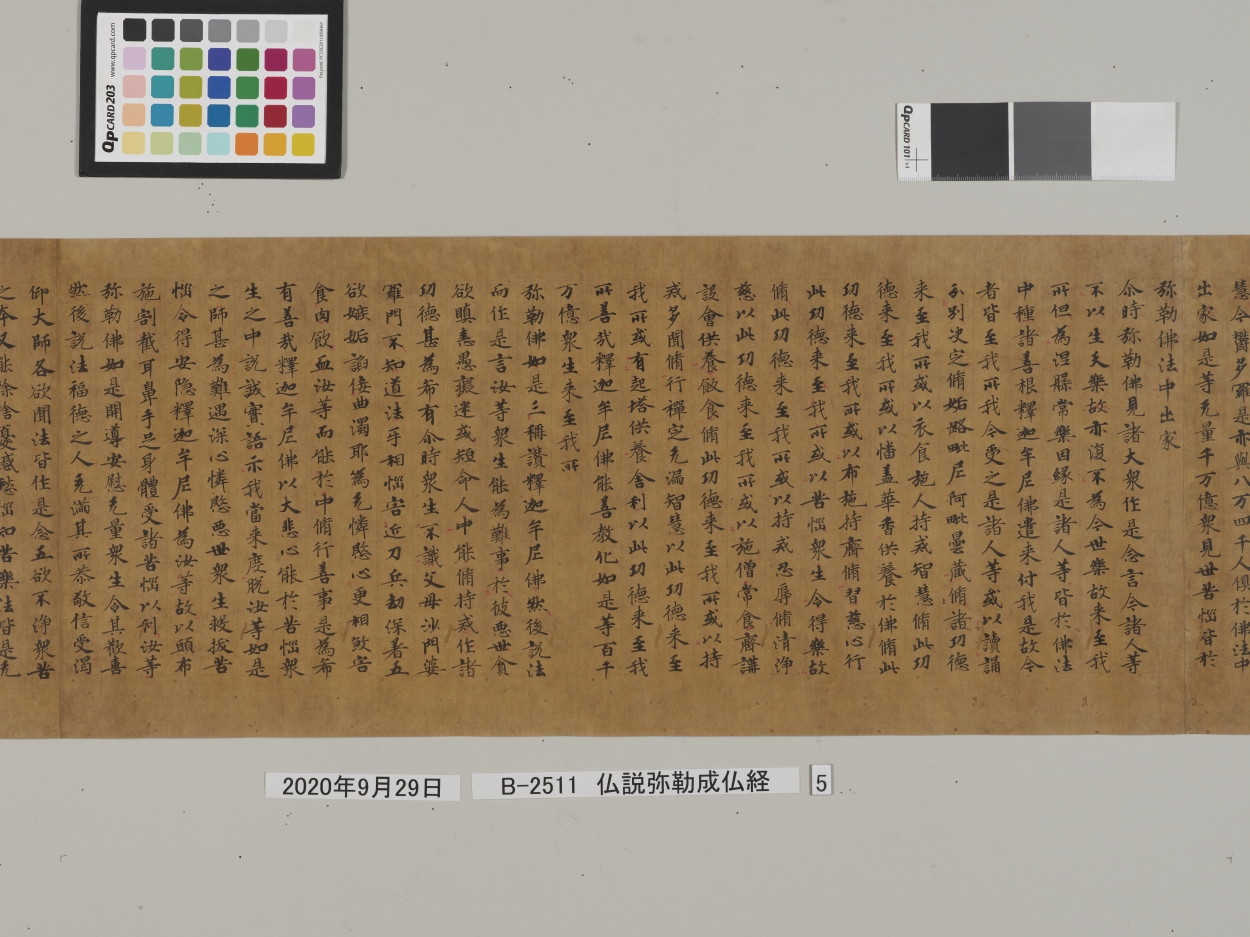 慧今欝多羅是亦與八万四千人俱於佛法中
出家如是等无量千万億衆見世苦惱皆於
弥勒佛法中出家
尒時弥勒佛見諸大衆作是念言今諸人等
不以生天樂故亦復不為今世樂故来至我
所但為涅槃常樂因緣是諸人等皆於佛法
中種諸善根釋迦牟尼佛遣来付我是故今
者皆至我所我今受之是諸人等或以讀誦
分別決定脩妬路毗尼阿毗曇藏脩諸功德
来至我所或以衣食施人持戒智慧脩此功
德来至我所或以幡盖華香供養於佛脩此
功德来至我所或以布施持齋脩習慈心行
此功德来至我所或以苦惱衆生令得樂故
脩此功德来至我所或以持戒忍辱脩清淨
慈以此功德来至我所或以施僧常食齋講
設會供養飯食脩此功德来至我所或以持
戒多聞脩行禪定无漏智慧以此功德来至
我所或有起塔供養舍利以此功德来至我
所善哉釋迦牟尼佛能善教化如是等百千
万億衆生来至我所
弥勒佛如是三稱讚釋迦牟尼佛然後說法
而作是言汝等衆生能為難事於彼惡世貪
欲瞋恚愚癡迷或短命人中能脩持戒作諸
功德甚為希有尒時衆生不識父母沙門婆
羅門不知道法乎相惱害近刀兵劫深著五
欲嫉妬諂侫曲濁耶為无憐愍心更相煞害
食肉飲血汝等而能於中脩行善事是為希
有善哉釋迦牟尼佛以大悲心能於苦惱衆
生之中說誠實語示我當来度脫汝等如是
之師甚為難遇深心憐愍惡世衆生救拔苦
惱令得安隐釋迦牟尼佛為汝等故以頭布
施割截耳鼻手足身體受諸苦惱以利汝等
弥勒佛如是開導安慰无量衆生令其歡喜
然後說法福德之人充滿其所恭敬信受渴
仰大師各欲聞法皆作是念五欲不淨衆苦
之本又能除捨憂慼愁惱知苦樂法皆是无
2020年9月29日
B-2511 仏説弥勒成仏経
5
QPCARD 203
www.qpcard.com
QPCARD 101